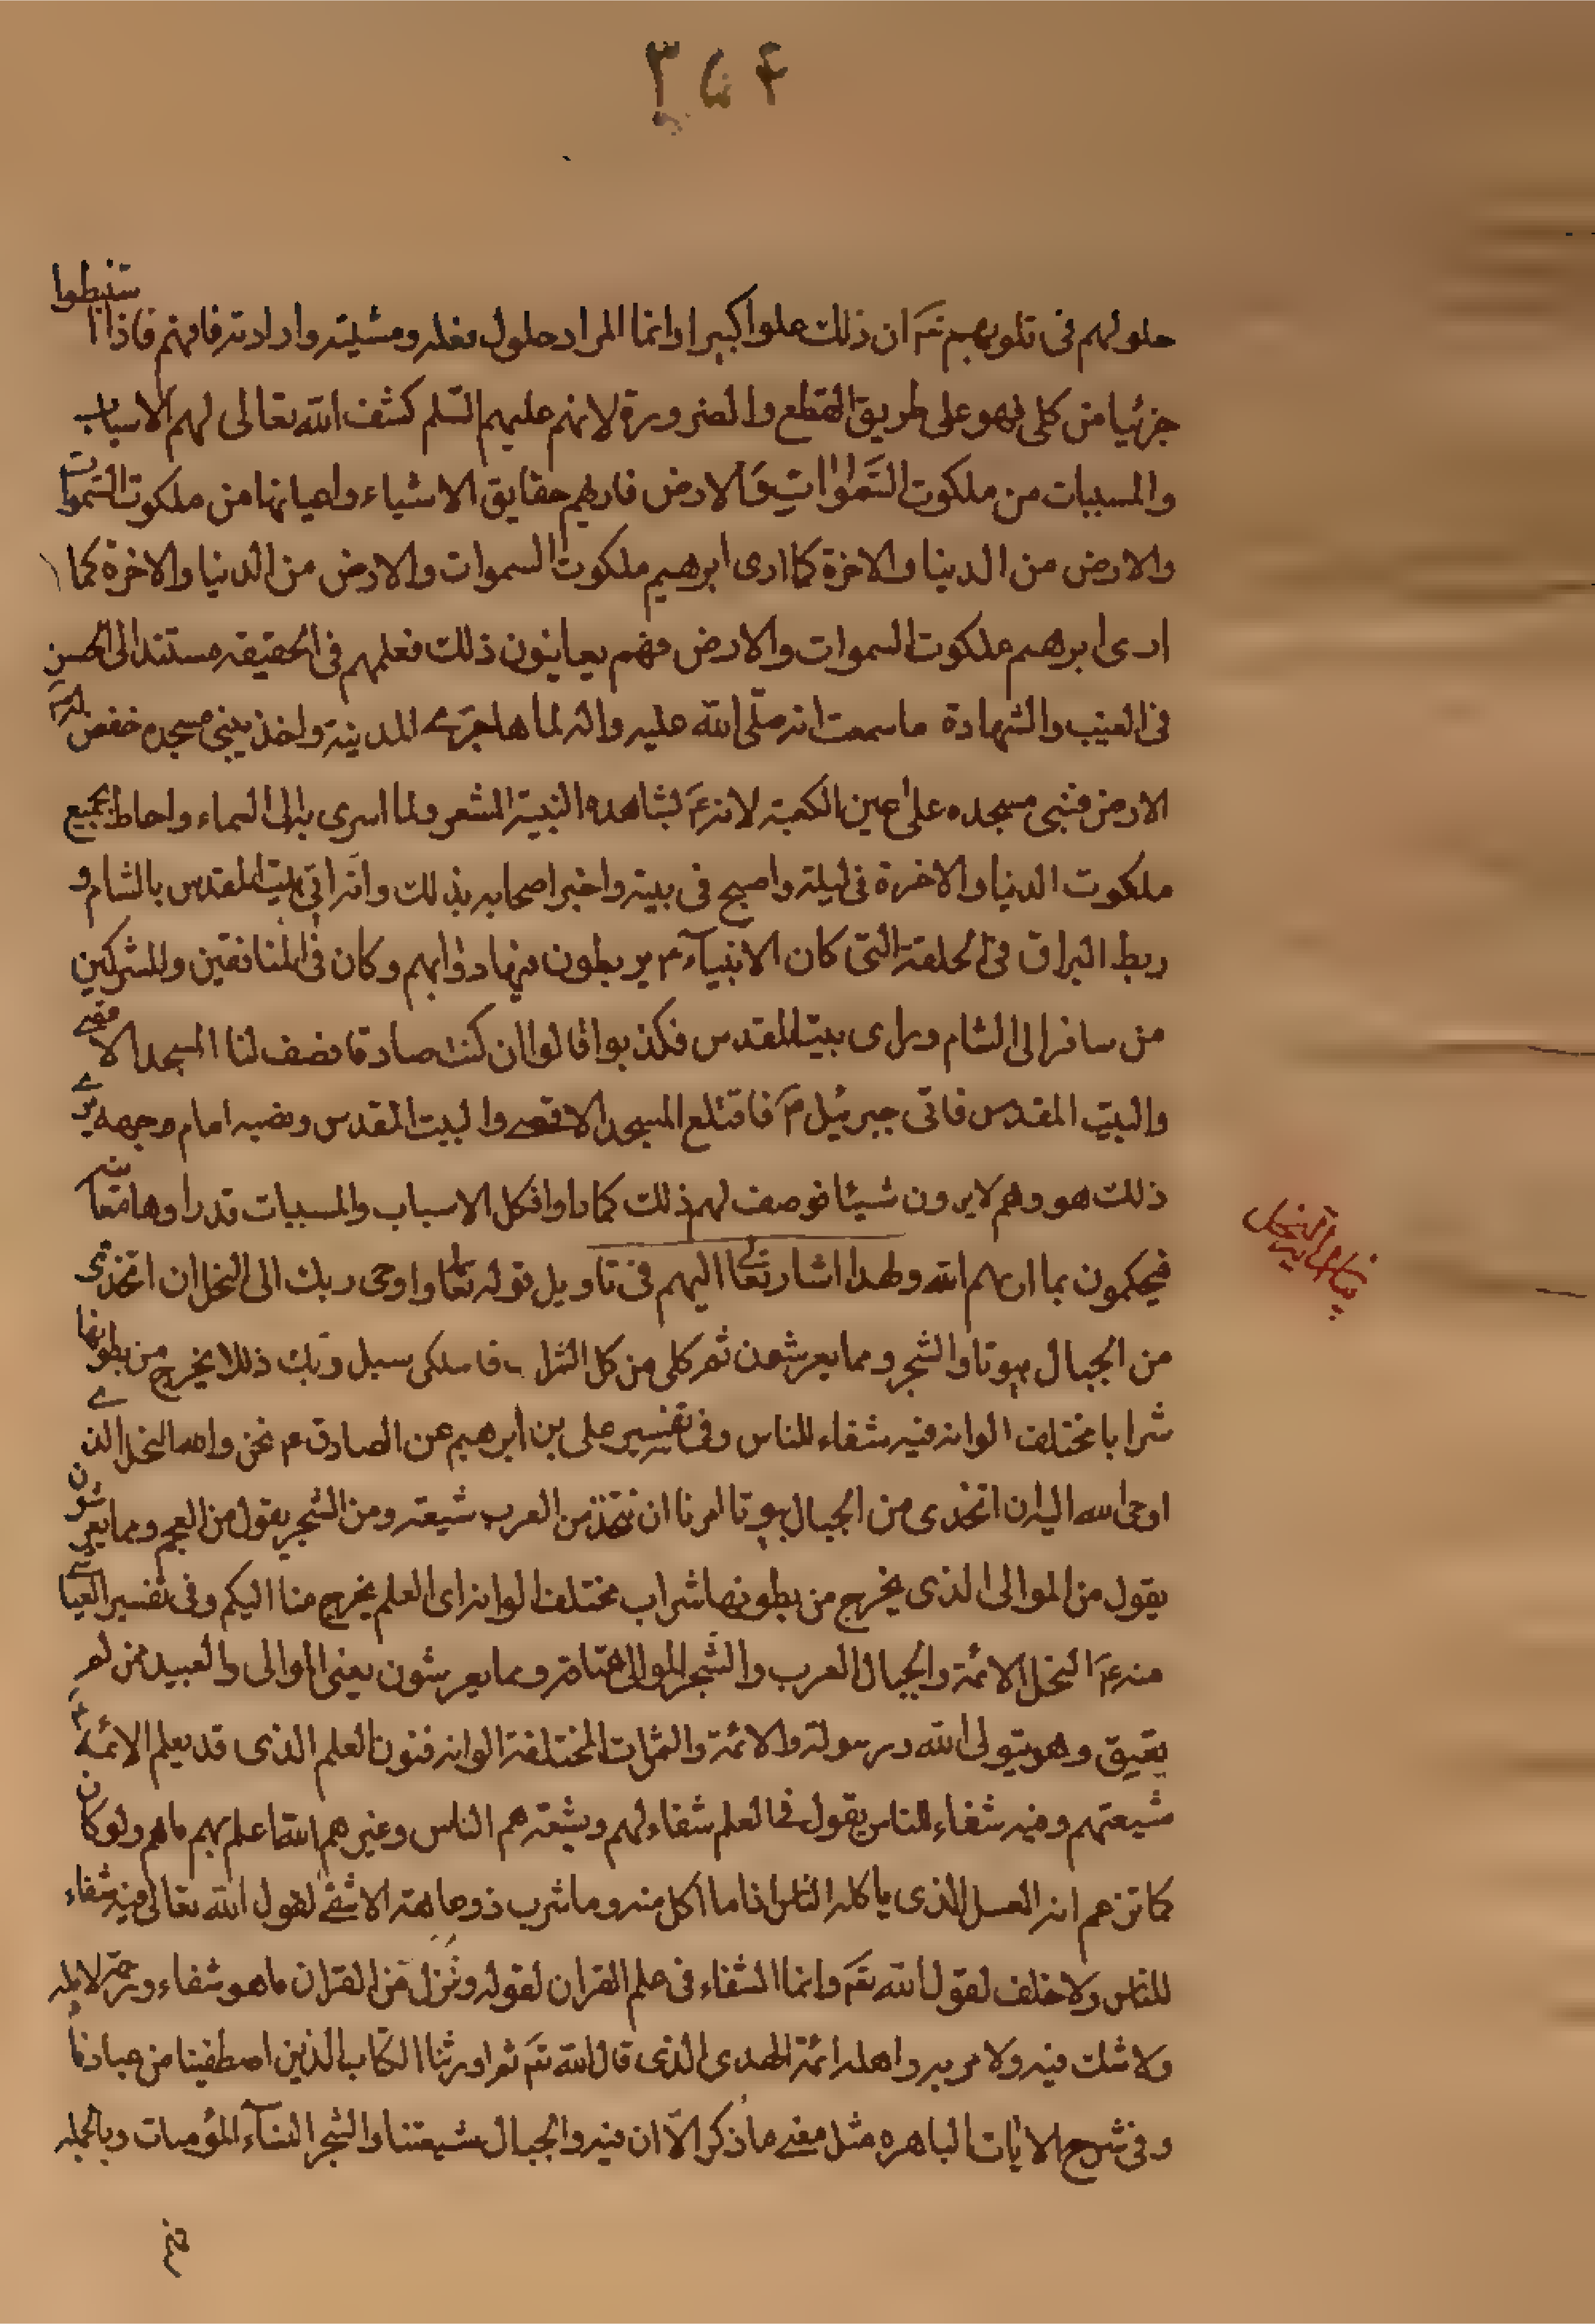 حلولهم فى قلوبهم تع ان ذلك علوا كبيرا وانما المراد حلول فعله ومشيته وارادته فافهم فاذا استنبطوا
جزئيا من كلى فهو على طريق القطع والضرورة لانهم عليهم السلم كشف الله تعالى لهم الاسباب
والمسببات من ملكوت السموات والارض فاريهم حقايق الاشياء واعيانها من ملكوت السموات
والارض من الدنيا والاخرة كما ارى ابرهيم ملكوت السموات والارض من الدنيا والاخرة كما
ارى ابرهيم ملكوت السموات والارض فهم يعاينون ذلك فعلمهم فى الحقيقه مستند الى الحس
فى الغيب والشهادة ما سمعت انه صلى الله عليه واله لما هاجر الى المدينة واخذ يبنى مسجده خفض
الارض فبنى مسجده على عين الكعبة لانه ع يشاهده البنية المشعر ولما اسرى به الى السماء واحاط بجميع
ملكوت الدنيا والاخرة فى ليلته واصبح فى بيته واخبر اصحابه بذلك وانه اتى بيت المقدس بالشام و
ربط البراق فى الحلقة التى كان الانبياء ع يربطون فيها دوابهم وكان فى المنافقين والمشركين
من سافر الى الشام وراى بيت المقدس فكذبوا فقالوا ان كنت صادقا فصف لنا المسجد الاقصى
والبيت المقدس فاتى جبرئيل ع فاقتلع المسجد الاقصى والبيت المقدس ونصبه امام وجهه يرى
ذلك هو وهم لا يرون شيئا فوصف لهم ذلك كما راوا فكل الاسباب والمسببات قد راوها معاينة
فيحكمون بما اريهم الله ولهذا اشار تعالى اليهم فى تاويل قوله تعالى واوحى ربك الى النحل ان اتخذى
من الجبال بيوتا والشجر ومما يعرشون ثم كلى من كل الثمرات فاسلكى سبل ربك ذللا يخرج من بطونها
شرابا مختلف الوانه فيه شفاء للناس وفى تفسير على بن ابرهيم عن الصادق ع نحن والله النحل الذى
اوحى الله اليه ان اتخذى من الجبال بيوتا امرنا ان نتخذ من العرب شيعته ومن الشجر يقول من العجم ومما يعرشون
يقول من الموالى الذى يخرج من بطونها شراب مختلف الوانه اى العلم يخرج منا اليكم وفى تفسير العياشى
عنه ع النحل الائمة والجبال العرب والشجر الموالى عتاقه ومما يعرشون يعنى الموالى والعبيد ممن لم
يعتق وهو يتولى الله ورسوله والائمة والثمرات المختلفة الوانه فنون العلم الذى قد يعلم الائمة
شيعتهم وفيه شفاء للناس يقول فى العلم شفاء لهم وشيعته هم الناس وغيرهم الله اعلم بهم ما هم ولو كان
كما تزعم انه العسل الذى ياكله الناس اذا ما اكل منه وما شرب ذو عاهة الا شفى لقول الله تعالى فيه شفاء
للناس ولا خلف لقول الله تع وانما الشفاء فى علم القران لقوله وننزل من القران ما هو شفاء ورحمة لاهله
ولا شك فيه ولا مريه واهله ائمة الهدى الذى قال الله تع ثم اورثنا الكتاب الذين اصطفينا من عبادنا
وفى شرح الايات الباهره مثل معنى ما ذكر الا ان فيه والجبال شيعتنا والشجر النساء المؤمنات وبالجمله